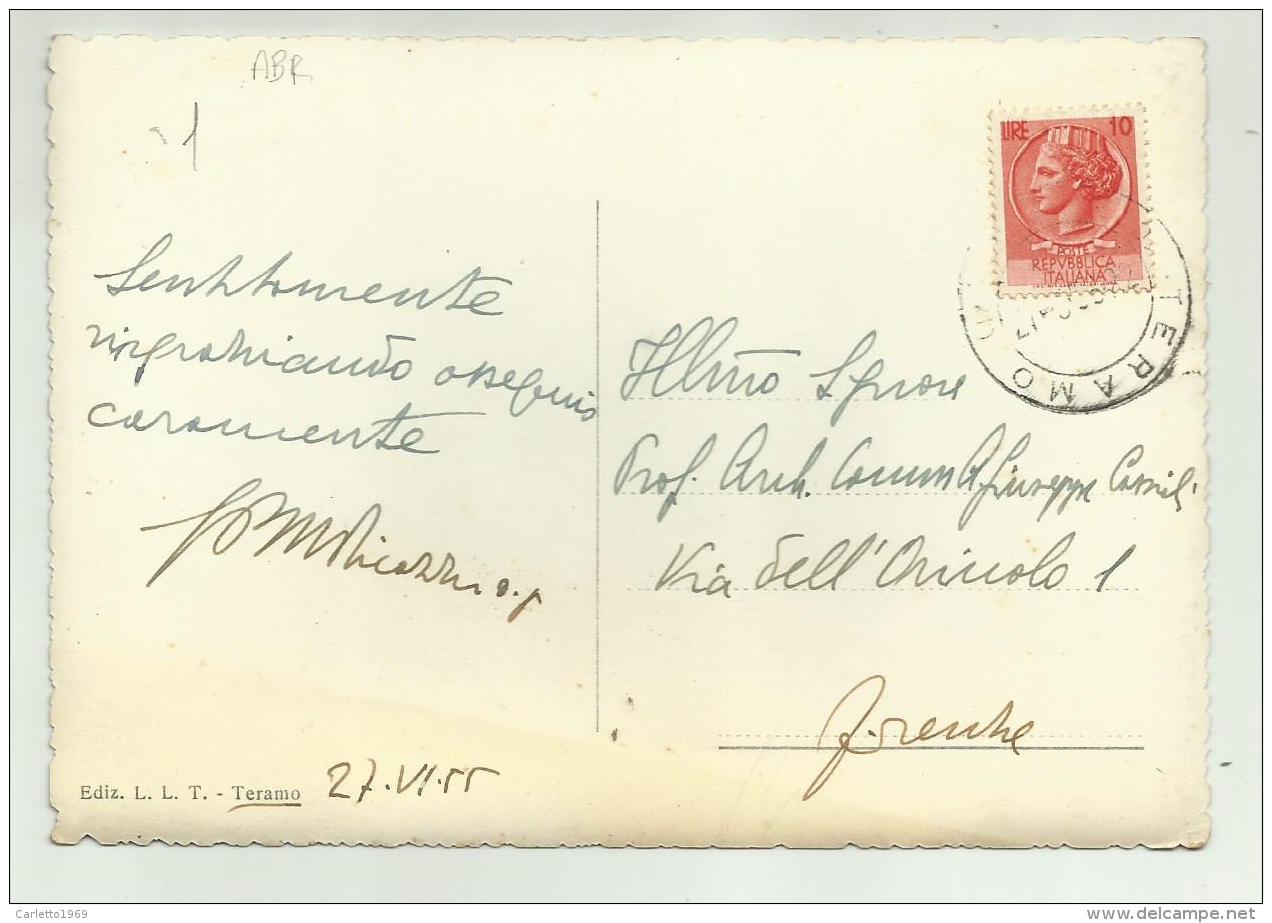 ABR
1
LIRE 10
POSTE
REPVBBLICA
ITALIANA
TERAMO
Sentitamente
ringraziando ossequio
caramente
Ill.mo Signore
Prof. Arch. Comm. Giuseppe
Via dell'Oriuolo 1
Firenze
Ediz. L. L. T. - Teramo 27.VI.55
Carletto1969
www.delcampe.net